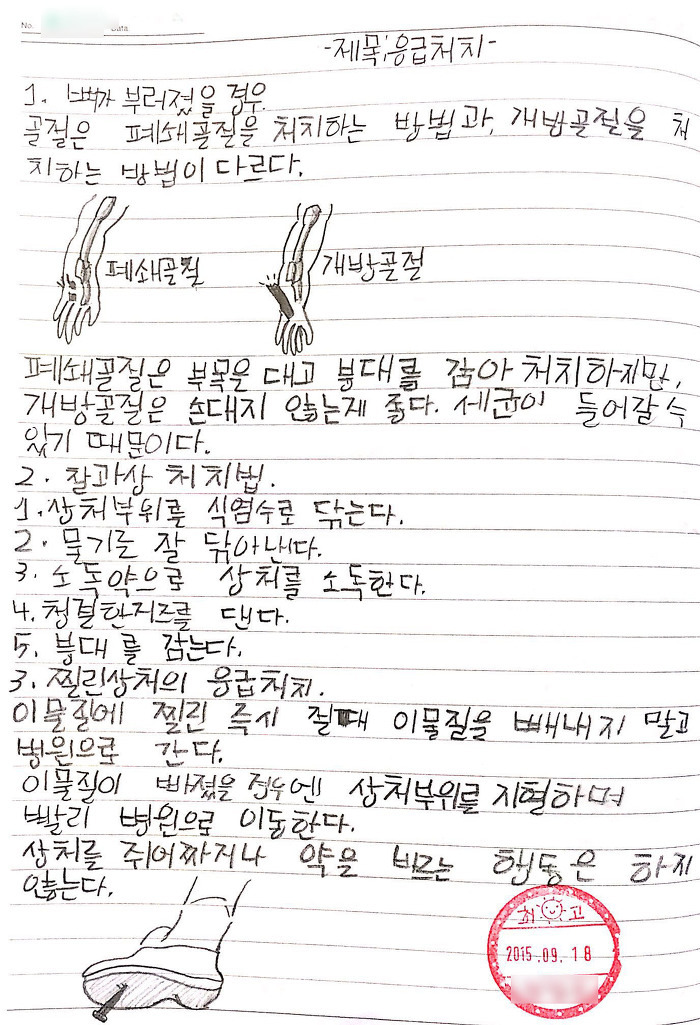 No.
Data
-제목;응급처치-
1. 뼈가 부러졌을 경우
골절은 폐쇄골절을 처치하는 방법과, 개방골절을 처
치하는 방법이 다르다.
폐쇄골절
개방골절
폐쇄골절은 부목을 대고 붕대를 감아 처치하지만,
개방골절은 손대지 않는게 좋다. 세균이 들어갈 수
있기 때문이다.
2. 찰과상 처치법.
1. 상처부위를 식염수로 닦는다.
2. 물기를 잘 닦아낸다.
3. 소독약으로 상처를 소독한다.
4. 청결한거즈를 댄다.
5. 붕대를 감는다.
3. 찔린상처의 응급처치.
이물질에 찔린 즉시 절대 이물질을 빼내지 말고
병원으로 간다.
이물질이 빠졌을 경우엔 상처부위를 지혈하며
빨리 병원으로 이동한다.
상처를 쥐어짜거나 약을 바르는 행동은 하지
않는다.
최고
2015.09.18